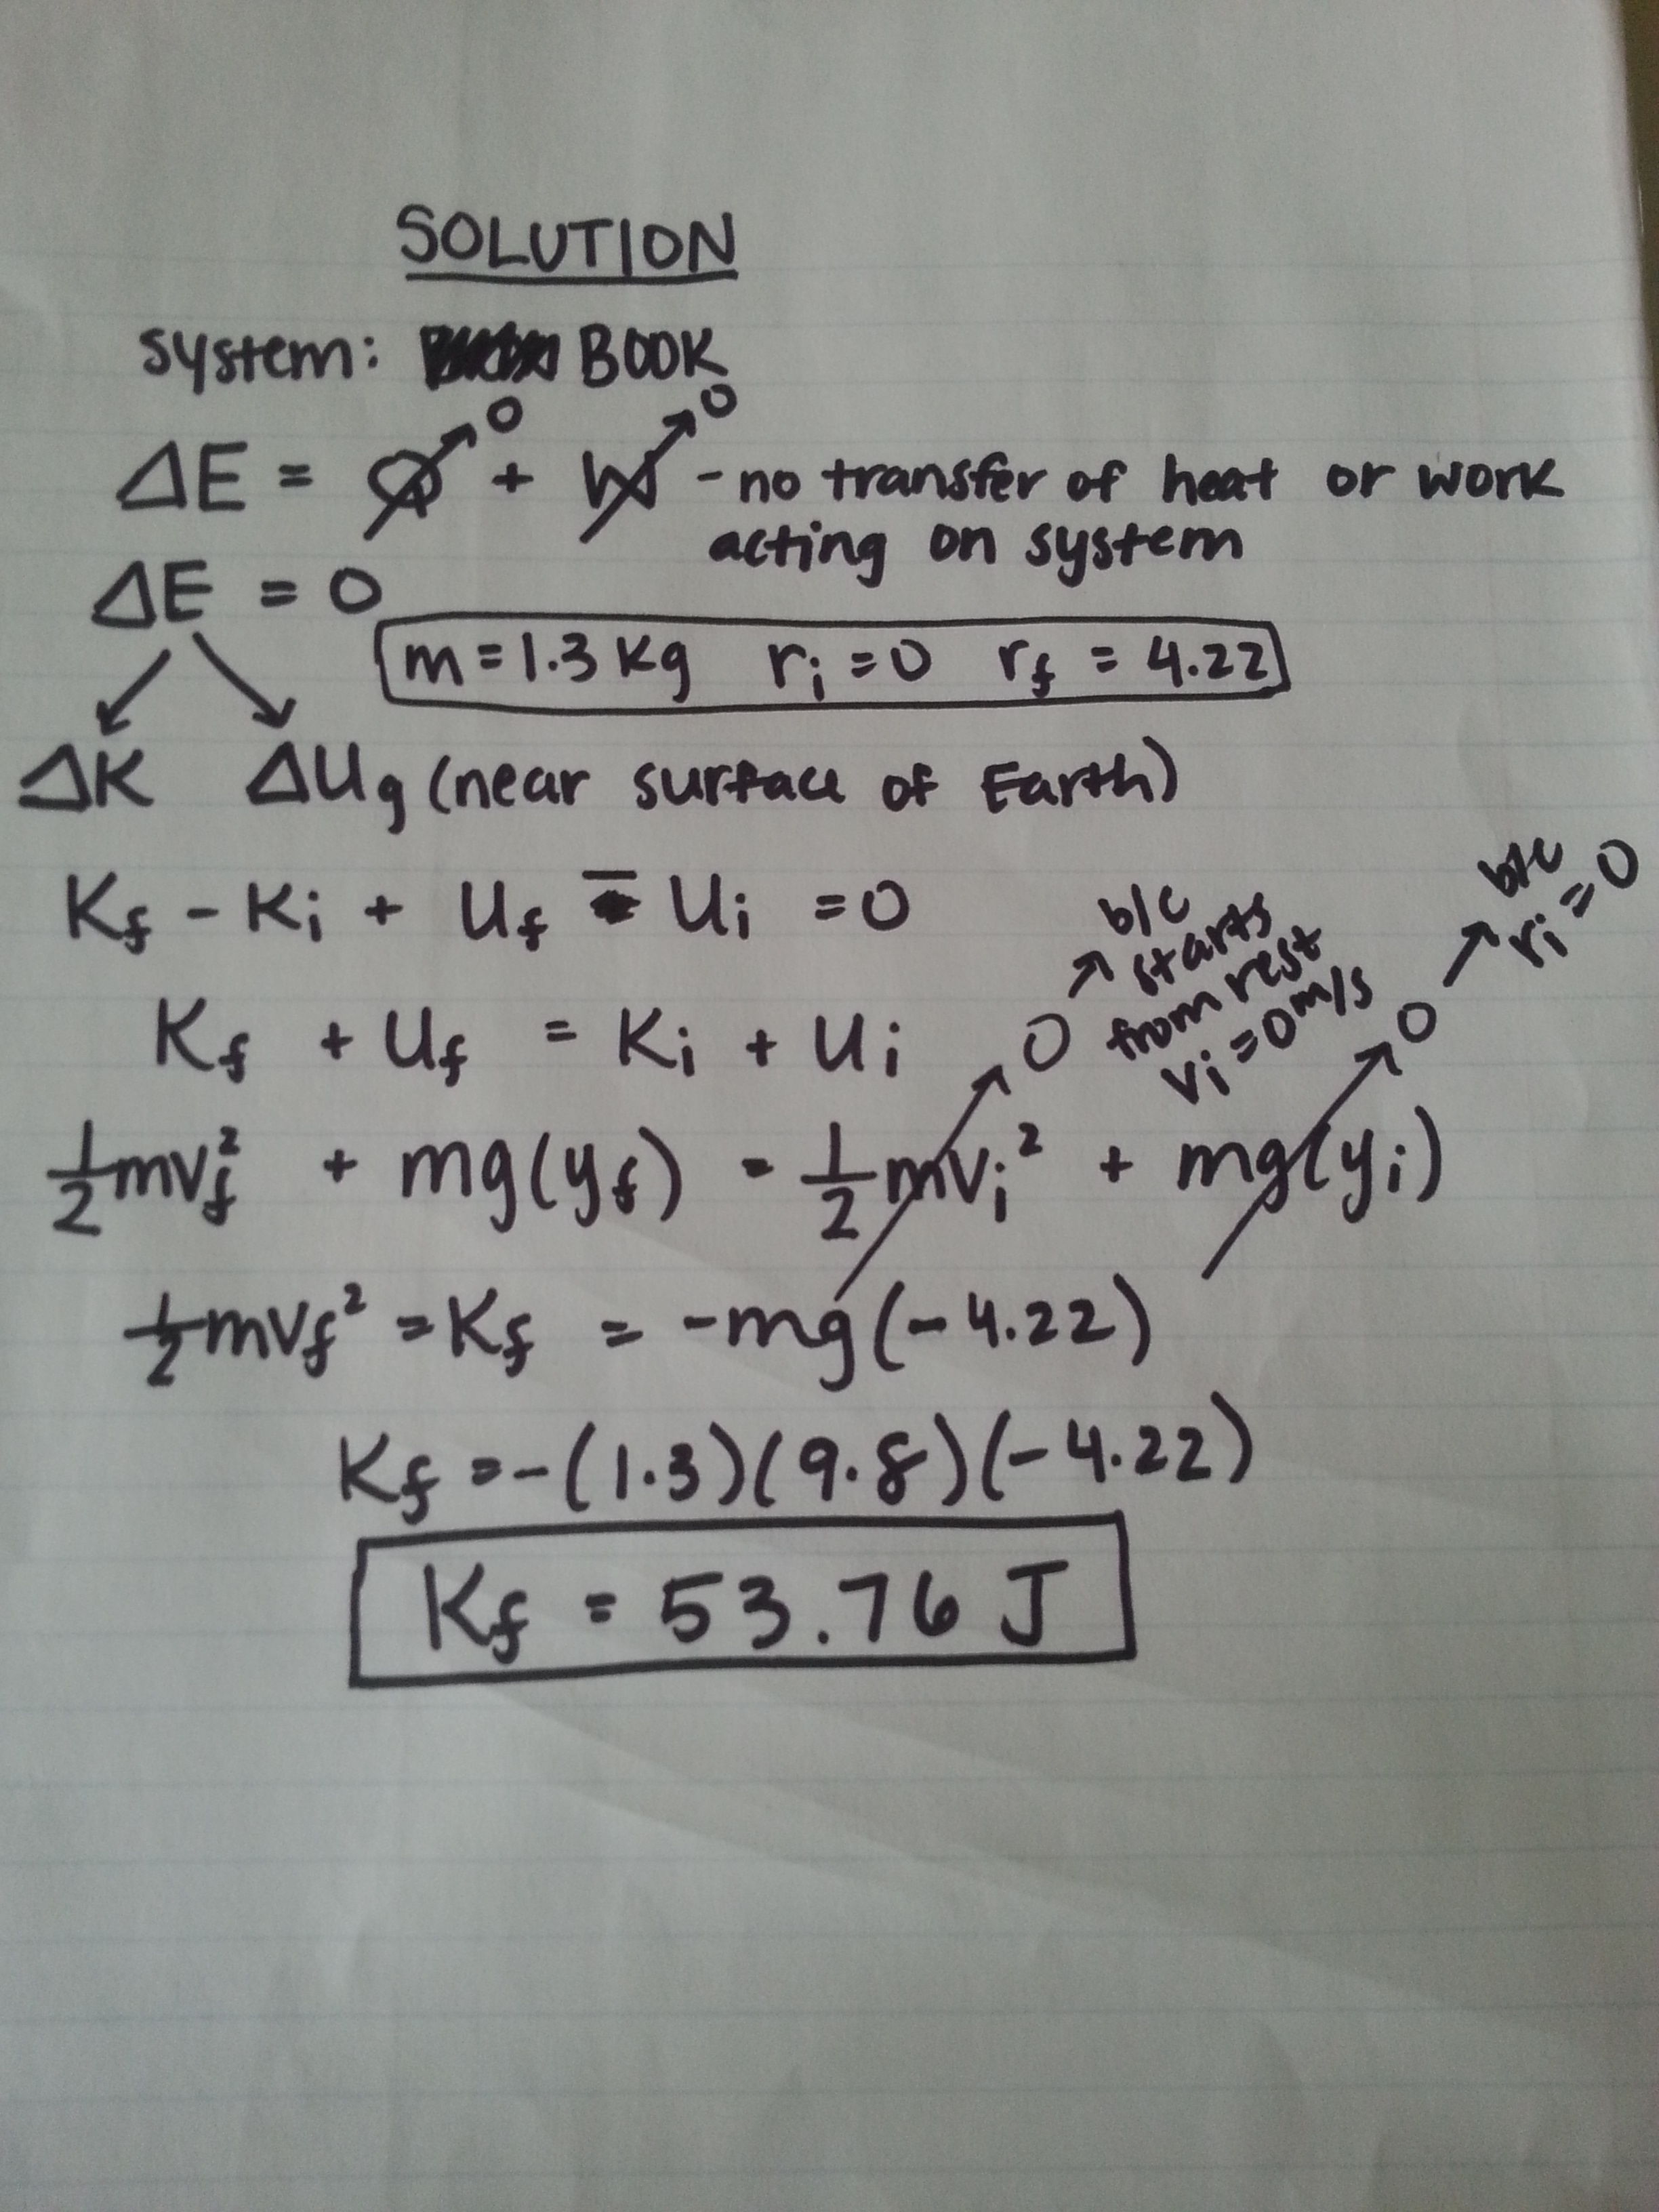 SOLUTION
system: BOOK
ΔE = Q↗0 + W↗0 - no transfer of heat or work
acting on system
ΔE = 0
m = 1.3 kg ri = 0 rf = 4.22
ΔK ΔUg (near surface of Earth)
Kf - Ki + Uf - Ui = 0
Kf + Uf = Ki + Ui
0 ↗ b/c
starts
from rest
vi = 0 m/s
0 ↗ b/c
ri = 0
½mvf² + mg(yf) = ½mvi² + mg(yi)
½mvf² = Kf = -mg(-4.22)
Kf = -(1.3)(9.8)(-4.22)
Kf = 53.76 J